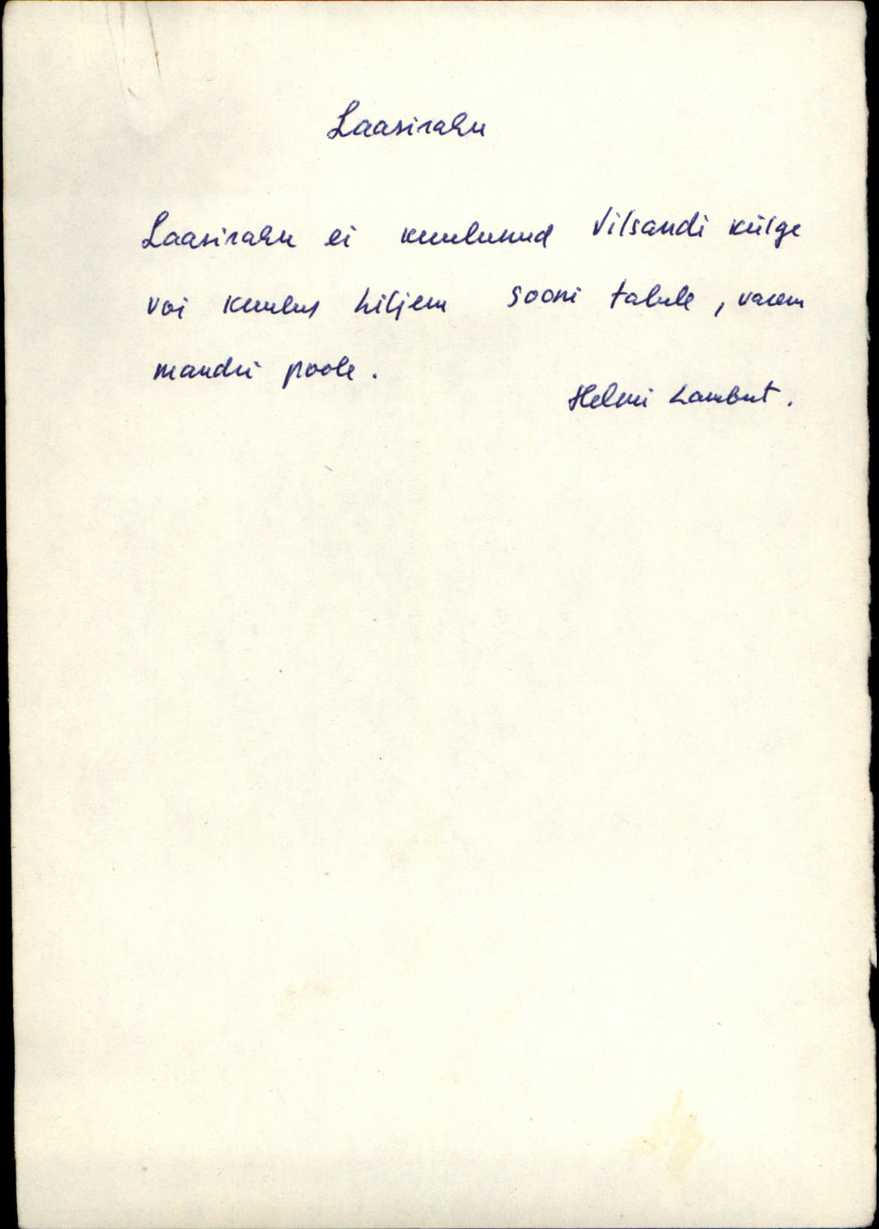 Laasirahu
Laasirahu ei kuulunud Vilsandi külge
voi kuulus hiljem Sooni talule, varem
mandri poole.
Helmi Lambut.